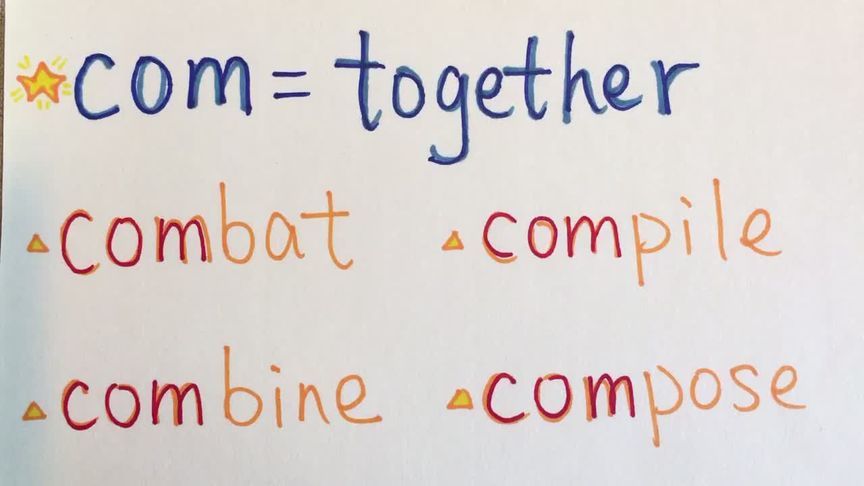 com = together
combat compile
combine compose